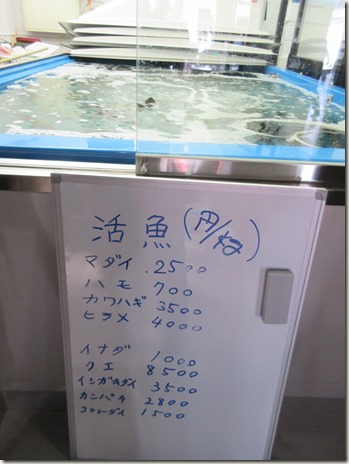 活魚(円/kg)
マダイ 2500
ハモ 700
カワハギ 3500
ヒラメ 4000
イナダ 1000
クエ 8500
イシガキダイ 3500
カンパチ 2800
コショーダイ 1500